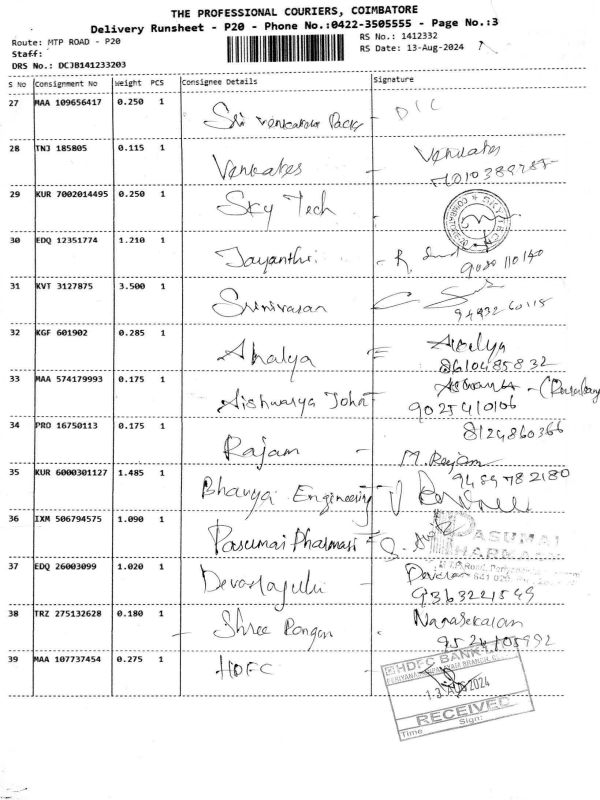 THE PROFESSIONAL COURIERS, COIMBATORE
Delivery Runsheet - P20 - Phone No.:0422-3505555 - Page No.:3
Route: MTP ROAD - P20 RS No.: 1412332
Staff: RS Date: 13-Aug-2024
DRS No.: DCJB141233203
S No Consignment No Weight PCS Consignee Details Signature
27 MAA 109656417 0.250 1 Sri Venkateswara Packs - DIC
28 TNJ 185805 0.115 1 Venkates - Venkates
29 KUR 7002014495 0.250 1 Sky Tech - SKYTECH
30 EDQ 12351774 1.210 1 Jayanthi -
9080110140
31 KVT 3127875 3.500 1 Srinivasan
32 KGF 601902 0.285 1 Ahalya =
8610485832
33 MAA 574179993 0.175 1 Aishwarya John
9025410106
34 PRO 16750113 0.175 1 Rajam - M. Rajam
8124860366
35 KUR 6000301127 1.485 1 Bhavya Engineering
9489782180
36 IXM 506794575 1.090 1 Pasumai Pharmasi = PASUMAI PHARMACY
37 EDQ 26003099 1.020 1 Devarajulu -
9363221549
38 TRZ 275132628 0.180 1 - Shree Rongan - Nagasekaran
9524105992
39 MAA 107737454 0.275 1 HDFC - HDFC BANK LTD
13 AUG 2024
RECEIVED
Time Sign: